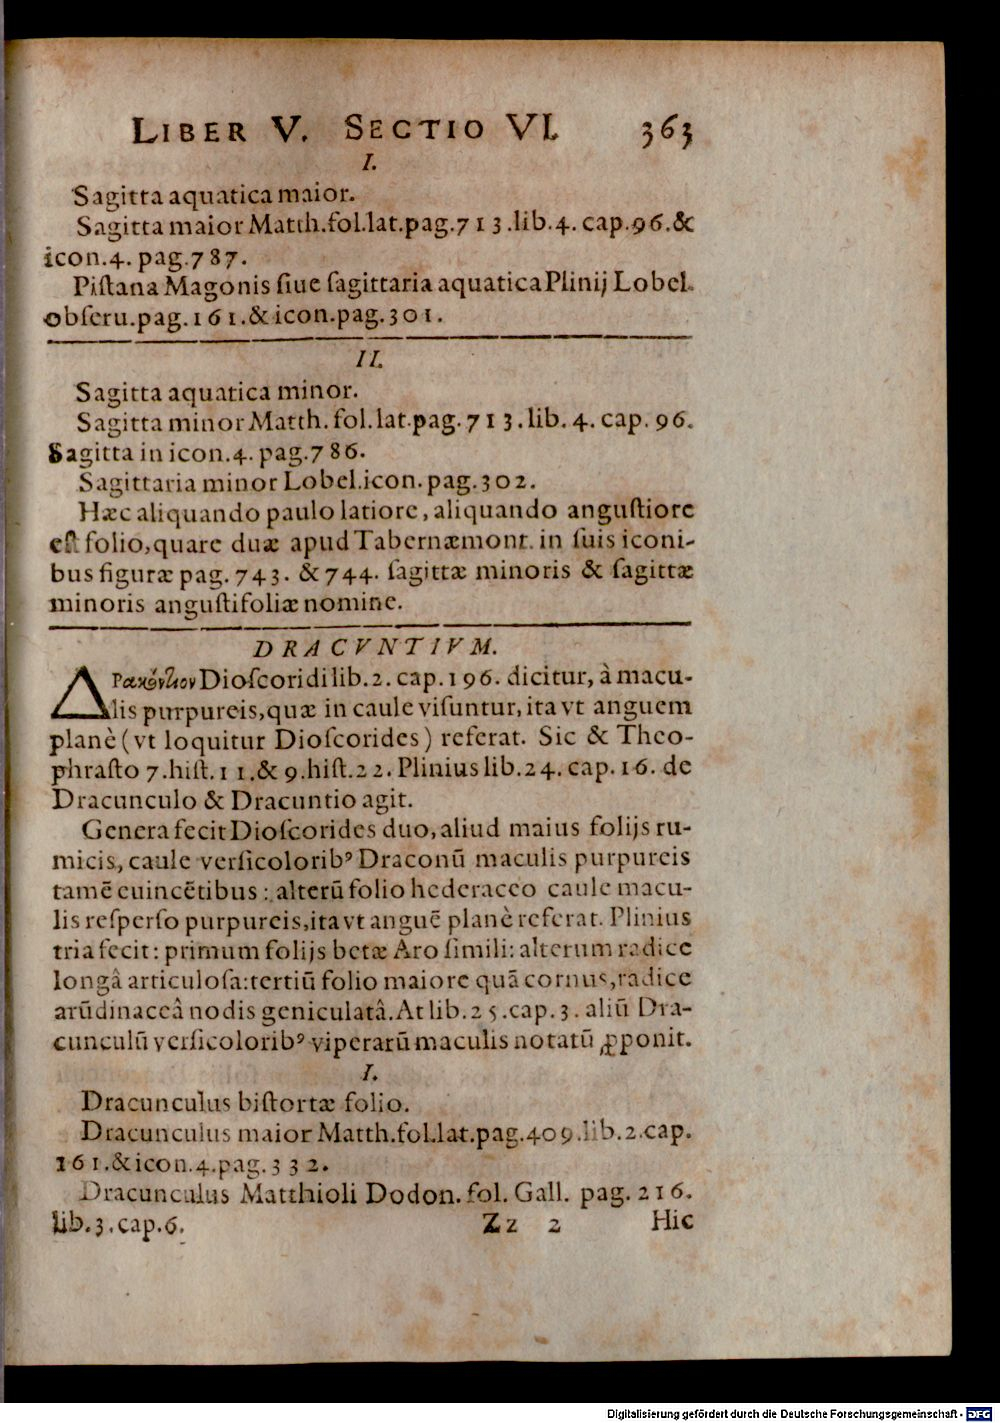 LIBER V. SECTIO VI. 363
I.
Sagitta aquatica maior.
Sagitta maior Matth.fol.lat.pag.713.lib.4. cap.96.&
icon.4. pag.787.
Piſtana Magonis ſiue ſagittaria aquatica Plinij Lobel.
obſeru.pag.161.& icon.pag.301.
II.
Sagitta aquatica minor.
Sagitta minor Matth. fol.lat.pag.713.lib.4. cap.96.
Sagitta in icon.4. pag.786.
Sagittaria minor Lobel.icon.pag.302.
Hæc aliquando paulo latiore, aliquando anguſtiore
eſt folio,quare duæ apud Tabernæmont. in ſuis iconi-
bus figuræ pag.743. & 744. ſagittæ minoris & ſagittæ
minoris anguſtifoliæ nomine.
DRACVNTIVM.
ΔΡακόντιον Dioſcoridi lib.2. cap.196. dicitur, à macu-
lis purpureis,quæ in caule viſuntur, ita vt anguem
planè (vt loquitur Dioſcorides) referat. Sic & Theo-
phraſto 7.hiſt.11.& 9.hiſt.22. Plinius lib.24. cap.16. de
Dracunculo & Dracuntio agit.
Genera fecit Dioſcorides duo, aliud maius folijs ru-
micis, caule verſicoloribꝰ Draconū maculis purpureis
tamē euincētibus : alterū folio hederaceo caule macu-
lis reſperſo purpureis,ita vt anguē planè referat. Plinius
tria fecit: primum folijs betæ Aro ſimili: alterum radice
longâ articuloſa:tertiū folio maiore quā cornus,radice
arūdinaceâ nodis geniculatâ. At lib.25.cap.3. aliū Dra-
cunculū verſicoloribꝰ viperarū maculis notatū ꝓponit.
I.
Dracunculus biſtortæ folio.
Dracunculus maior Matth.fol.lat.pag.409.lib.2.cap.
161.& icon.4.pag.332.
Dracunculus Matthioli Dodon. fol. Gall. pag. 216.
lib.3.cap.6. Zz 2 Hic
Digitalisierung gefördert durch die Deutsche Forschungsgemeinschaft - DFG